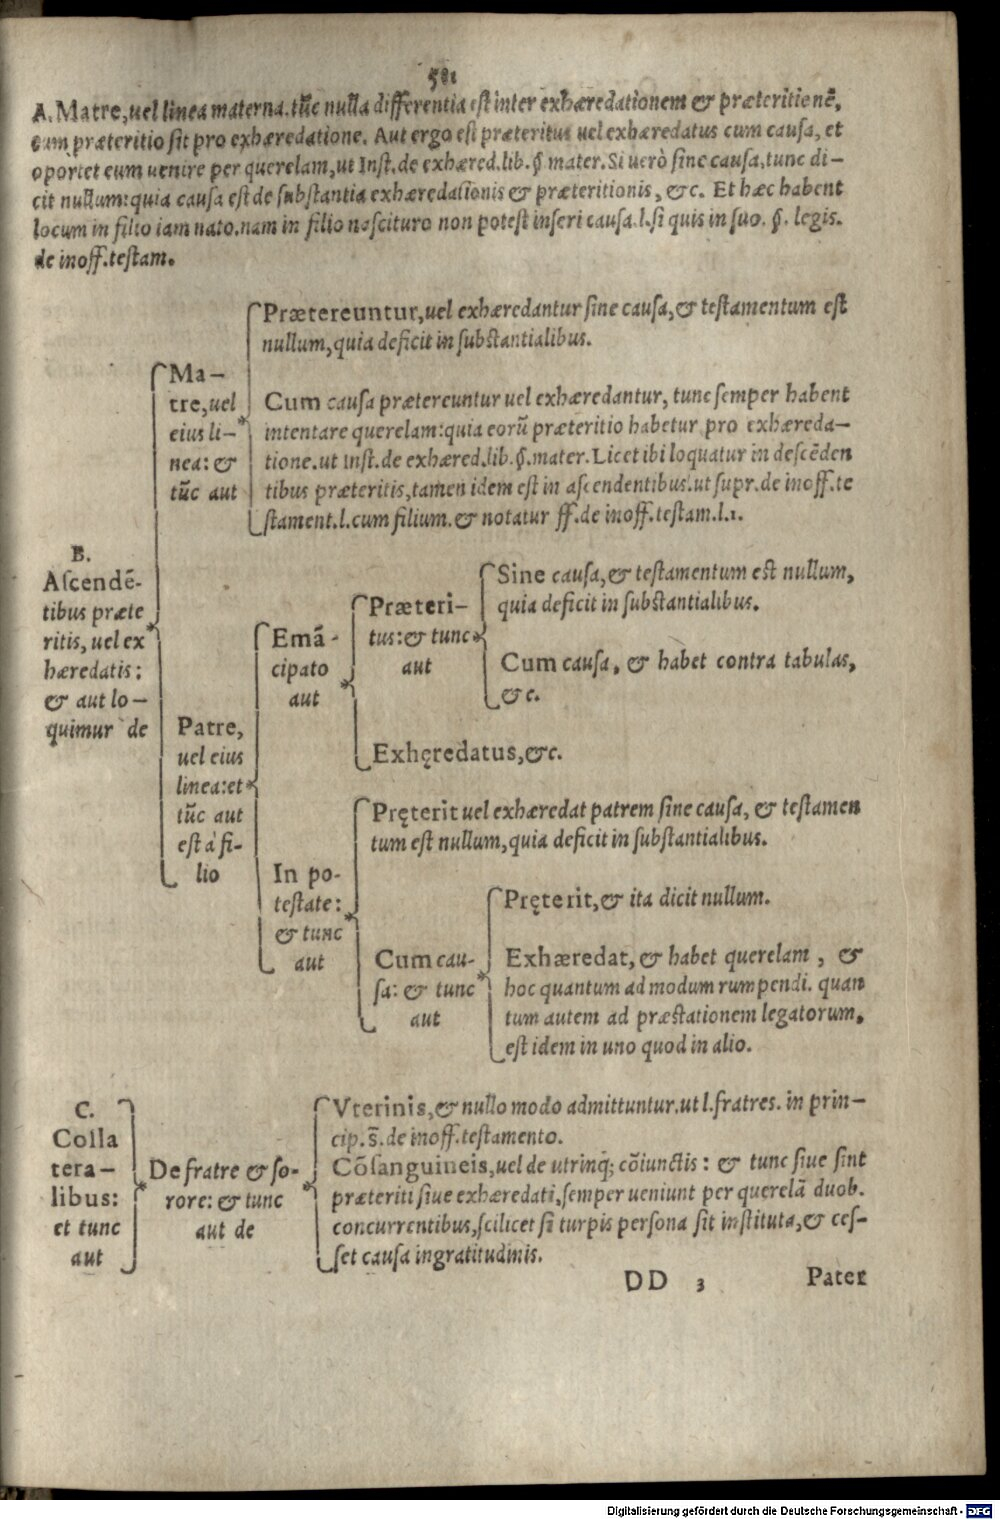 581
A. Matre, uel linea materna. tūc nulla differentia est inter exhæredationem & præteritionē,
cum præteritio sit pro exhæredatione. Aut ergo est præteritus uel exhæredatus cum causa, et
oportet eum uenire per querelam, ut Inst. de exhæred. lib. §. mater. Si uerò sine causa, tunc di-
cit nullum: quia causa est de substantia exhæredationis & præteritionis, &c. Et hæc habent
locum in filio iam nato. nam in filio nascituro non potest inseri causa. l. si quis in suo. §. legis.
de inoff. testam.
B.
Ascendē-
tibus præte
ritis, uel ex
hæredatis:
& aut lo-
quimur de
Ma-
tre, uel
eius li-
nea: &
tūc aut
Prætereuntur, uel exhæredantur sine causa, & testamentum est
nullum, quia deficit in substantialibus.
Cum causa prætereuntur uel exhæredantur, tunc semper habent
intentare querelam: quia eorū præteritio habetur pro exhæreda-
tione. ut Inst. de exhæred. lib. §. mater. Licet ibi loquatur in descēden
tibus præteritis, tamen idem est in ascendentibus. ut supr. de inoff. te
stament. l. cum filium. & notatur ff. de inoff. testam. l. 1.
Patre,
uel eius
linea: et
tūc aut
est à fi-
lio
Emā-
cipato
aut
Præteri-
tus: & tunc
aut
Sine causa, & testamentum est nullum,
quia deficit in substantialibus.
Cum causa, & habet contra tabulas,
&c.
Exhęredatus, &c.
In po-
testate:
& tunc
aut
Pręterit uel exhæredat patrem sine causa, & testamen
tum est nullum, quia deficit in substantialibus.
Cum cau-
sa: & tunc
aut
Pręterit, & ita dicit nullum.
Exhæredat, & habet querelam, &
hoc quantum ad modum rumpendi. quan
tum autem ad præstationem legatorum,
est idem in uno quod in alio.
C.
Colla
tera-
libus:
et tunc
aut
De fratre & so-
rore: & tunc
aut de
Vterinis, & nullo modo admittuntur. ut l. fratres. in prin-
cip. s̄. de inoff. testamento.
Cōsanguineis, uel de utrinq; cōiunctis: & tunc siue sint
præteriti siue exhæredati, semper ueniunt per querelā duob.
concurrentibus, scilicet si turpis persona sit instituta, & ces-
set causa ingratitudinis.
DD 3 Pater
Digitalisierung gefördert durch die Deutsche Forschungsgemeinschaft - DFG